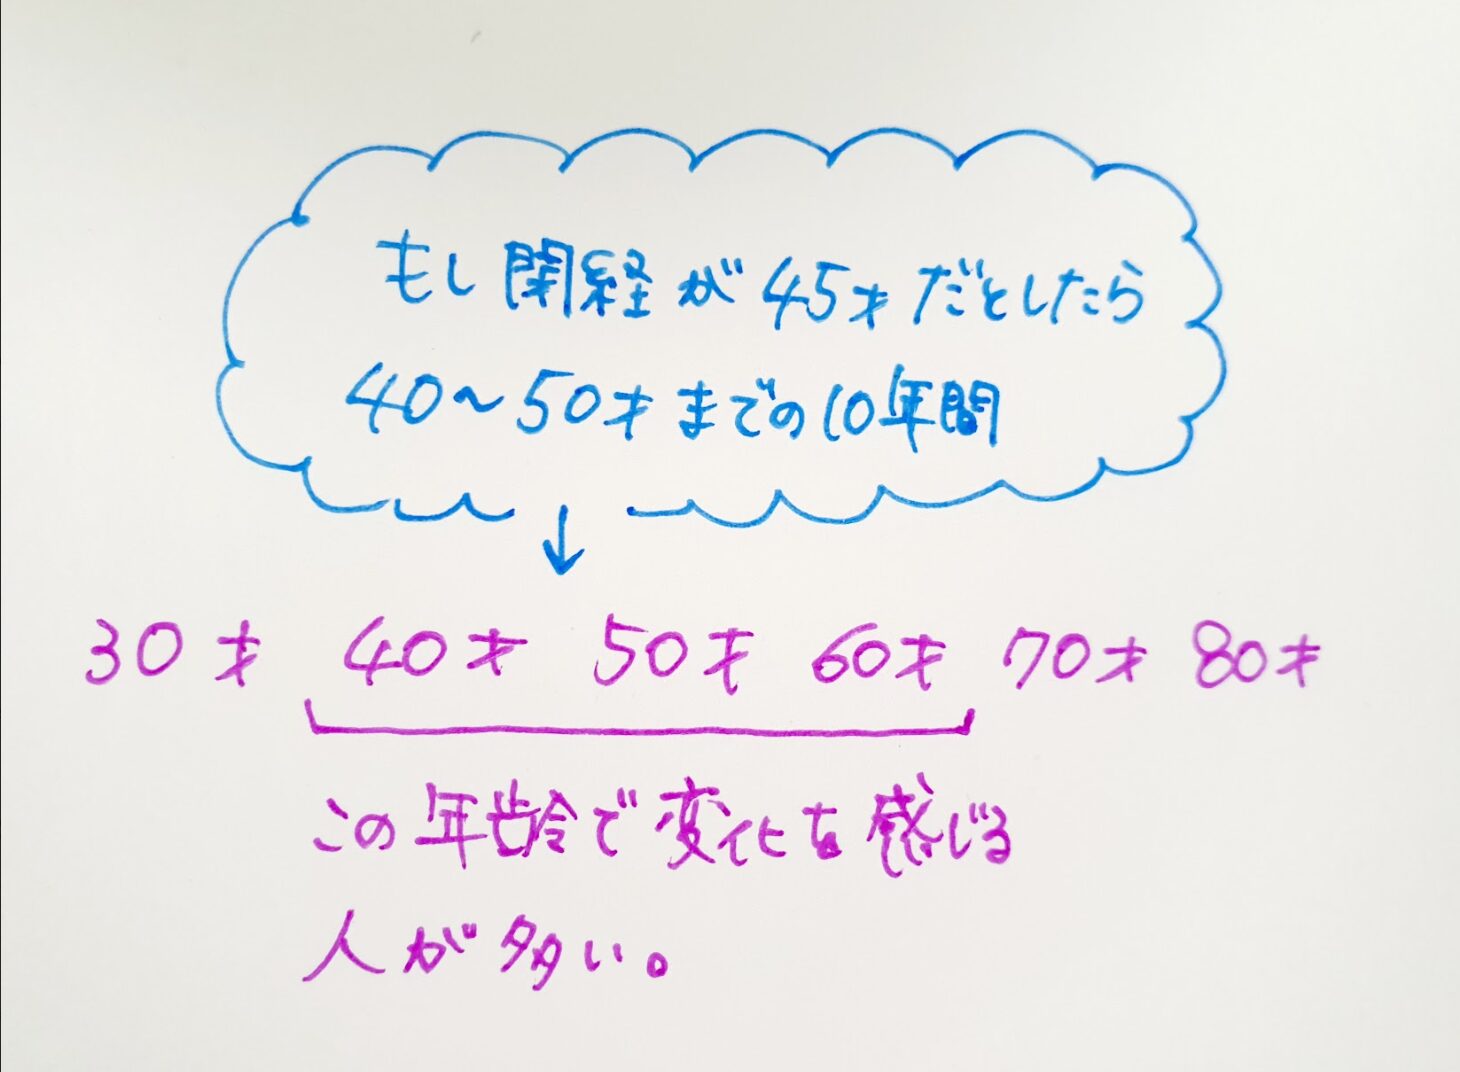 もし閉経が45才だとしたら
40〜50才までの10年間
↓
30才 40才 50才 60才 70才 80才
この年齢で変化を感じる
人が多い。